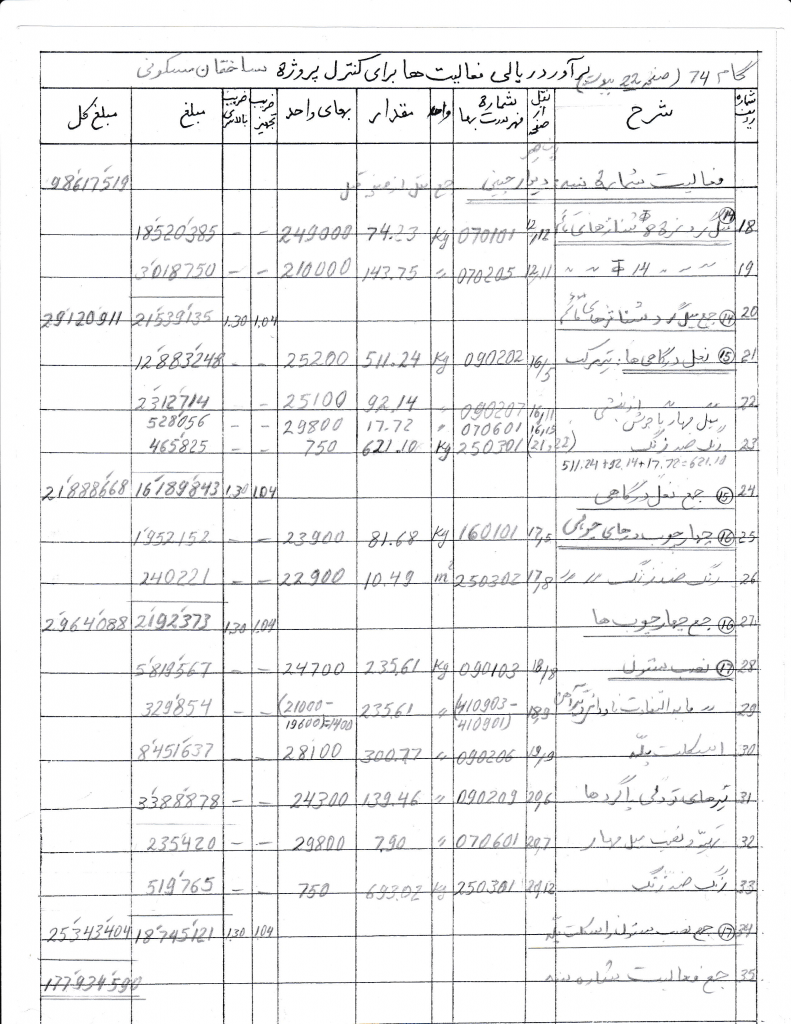 گام 74 (صفحه 22 پیوست) برآورد ریالی فعالیت ها برای کنترل پروژه ساختمان مسکونی
شماره ردیف شرح نقل از صفحه شماره فهرست بها واحد مقدار بهای واحد ضریب تجهیز ضریب بالاسری مبلغ مبلغ کل
فعالیت شماره سه: دیوارچینی جمع نقل از صفحه قبل 98617519
18 میل گرد نمره 8 Φ شناژهای قائم (14) 12,12 070101 Kg 74.33 249000 - - 18520385
19 〃 〃 〃 Φ 14 〃 〃 12,11 070205 〃 143.75 210000 - - 3018750
20 (14) جمع میل گرد شناژهای قائم 1.04 1.30 21539135 29120911
21 (15) نعل درگاهی ها: تیر مرکب 16/5 090202 Kg 511.24 25200 - - 12883248
22 〃 〃 از نبشی 16,11 090207 〃 92.14 25100 - - 2312714
میل مهار با جوش 070601 〃 17.72 29800 - - 528056
23 رنگ ضد زنگ (21,22) 250301 Kg 621.10 750 - - 465825
511.24+92.14+17.72=621.10
24 (15) جمع نعل درگاهی 1.04 1.30 16189843 21888668
25 (16) چهارچوب درهای چوبی 17,5 160101 Kg 81.68 23900 - - 1952152
26 رنگ ضد زنگ 〃 〃 17,8 250302 m² 10.49 22900 - - 240221
27 (16) جمع چهارچوب ها 1.04 1.30 2192373 2964088
28 (17) نصب ستون 18/8 090103 Kg 235,61 24700 - - 5819567
29 〃 مابه التفاوت 18,9 (410903-410901) 〃 235.61 (21000-19600)=1400 - - 329854
30 اسکلت پله 19,9 090206 〃 300.77 28100 - - 8451637
31 تیرهای پاگردها 20,6 090209 〃 139.46 24300 - - 3388878
32 تهیه و نصب میل مهار 20,7 070601 〃 7.90 29800 - - 235420
33 رنگ ضد زنگ 20,12 250301 Kg 693.02 750 - - 519765
34 (17) جمع نصب ستون و اسکلت پله 1.04 1.30 18745121 25343404
35 جمع فعالیت شماره سه 177934590